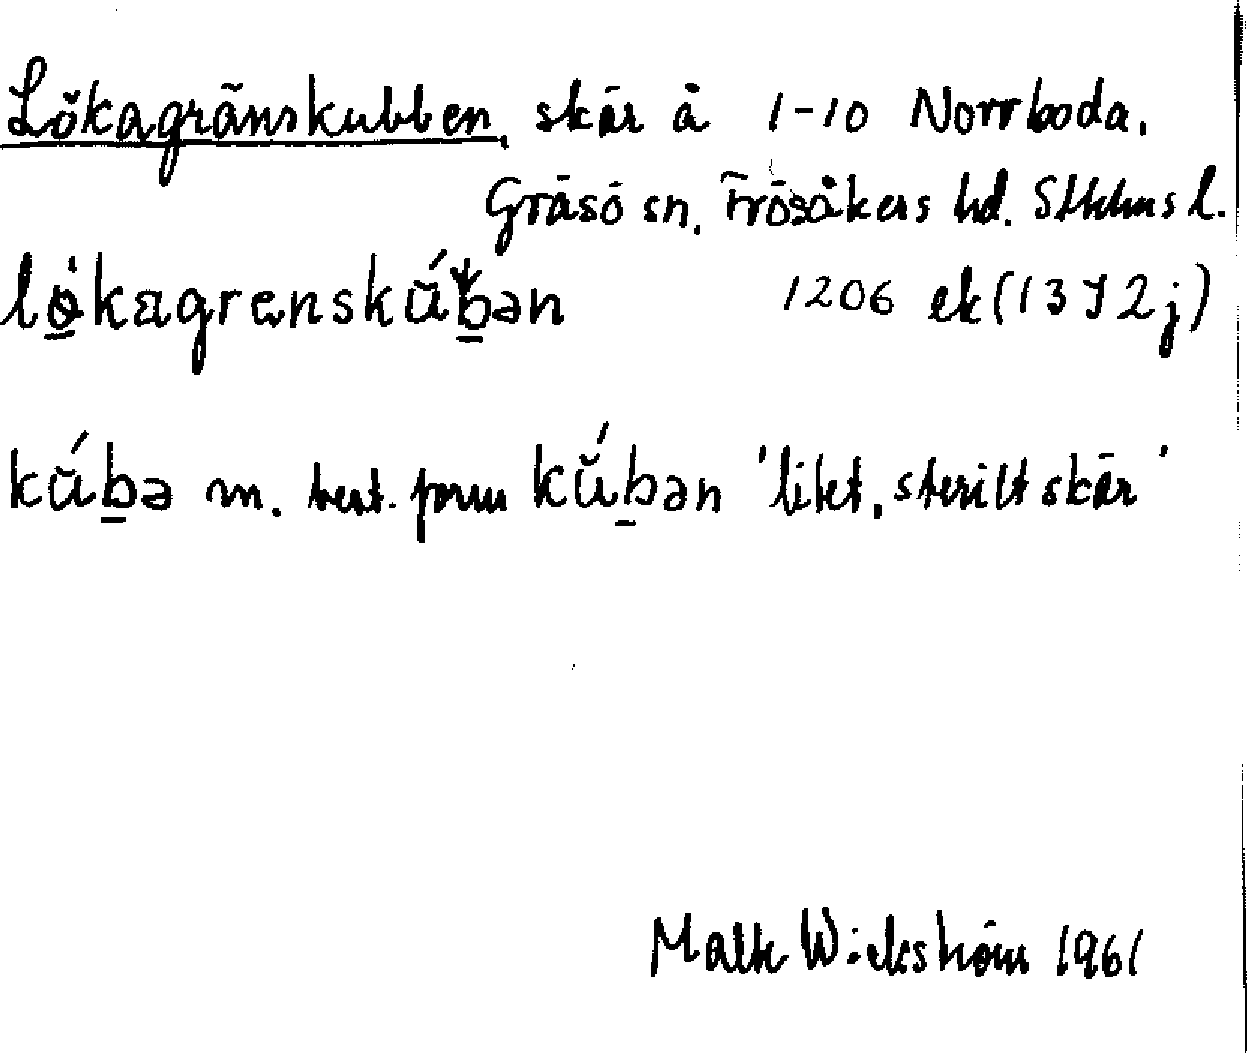 Lökagränskubben, skär å 1-10 Norrboda.
Gräsö sn. Frösåkers hd. Sthlms l.
lø̀kagrenskŭ́b̠ən 1206 ek (13 J 2 j)
kŭ́b̠ə m. best. form kŭ́b̠ən 'litet, sterilt skär'
Malte Wickström 1961